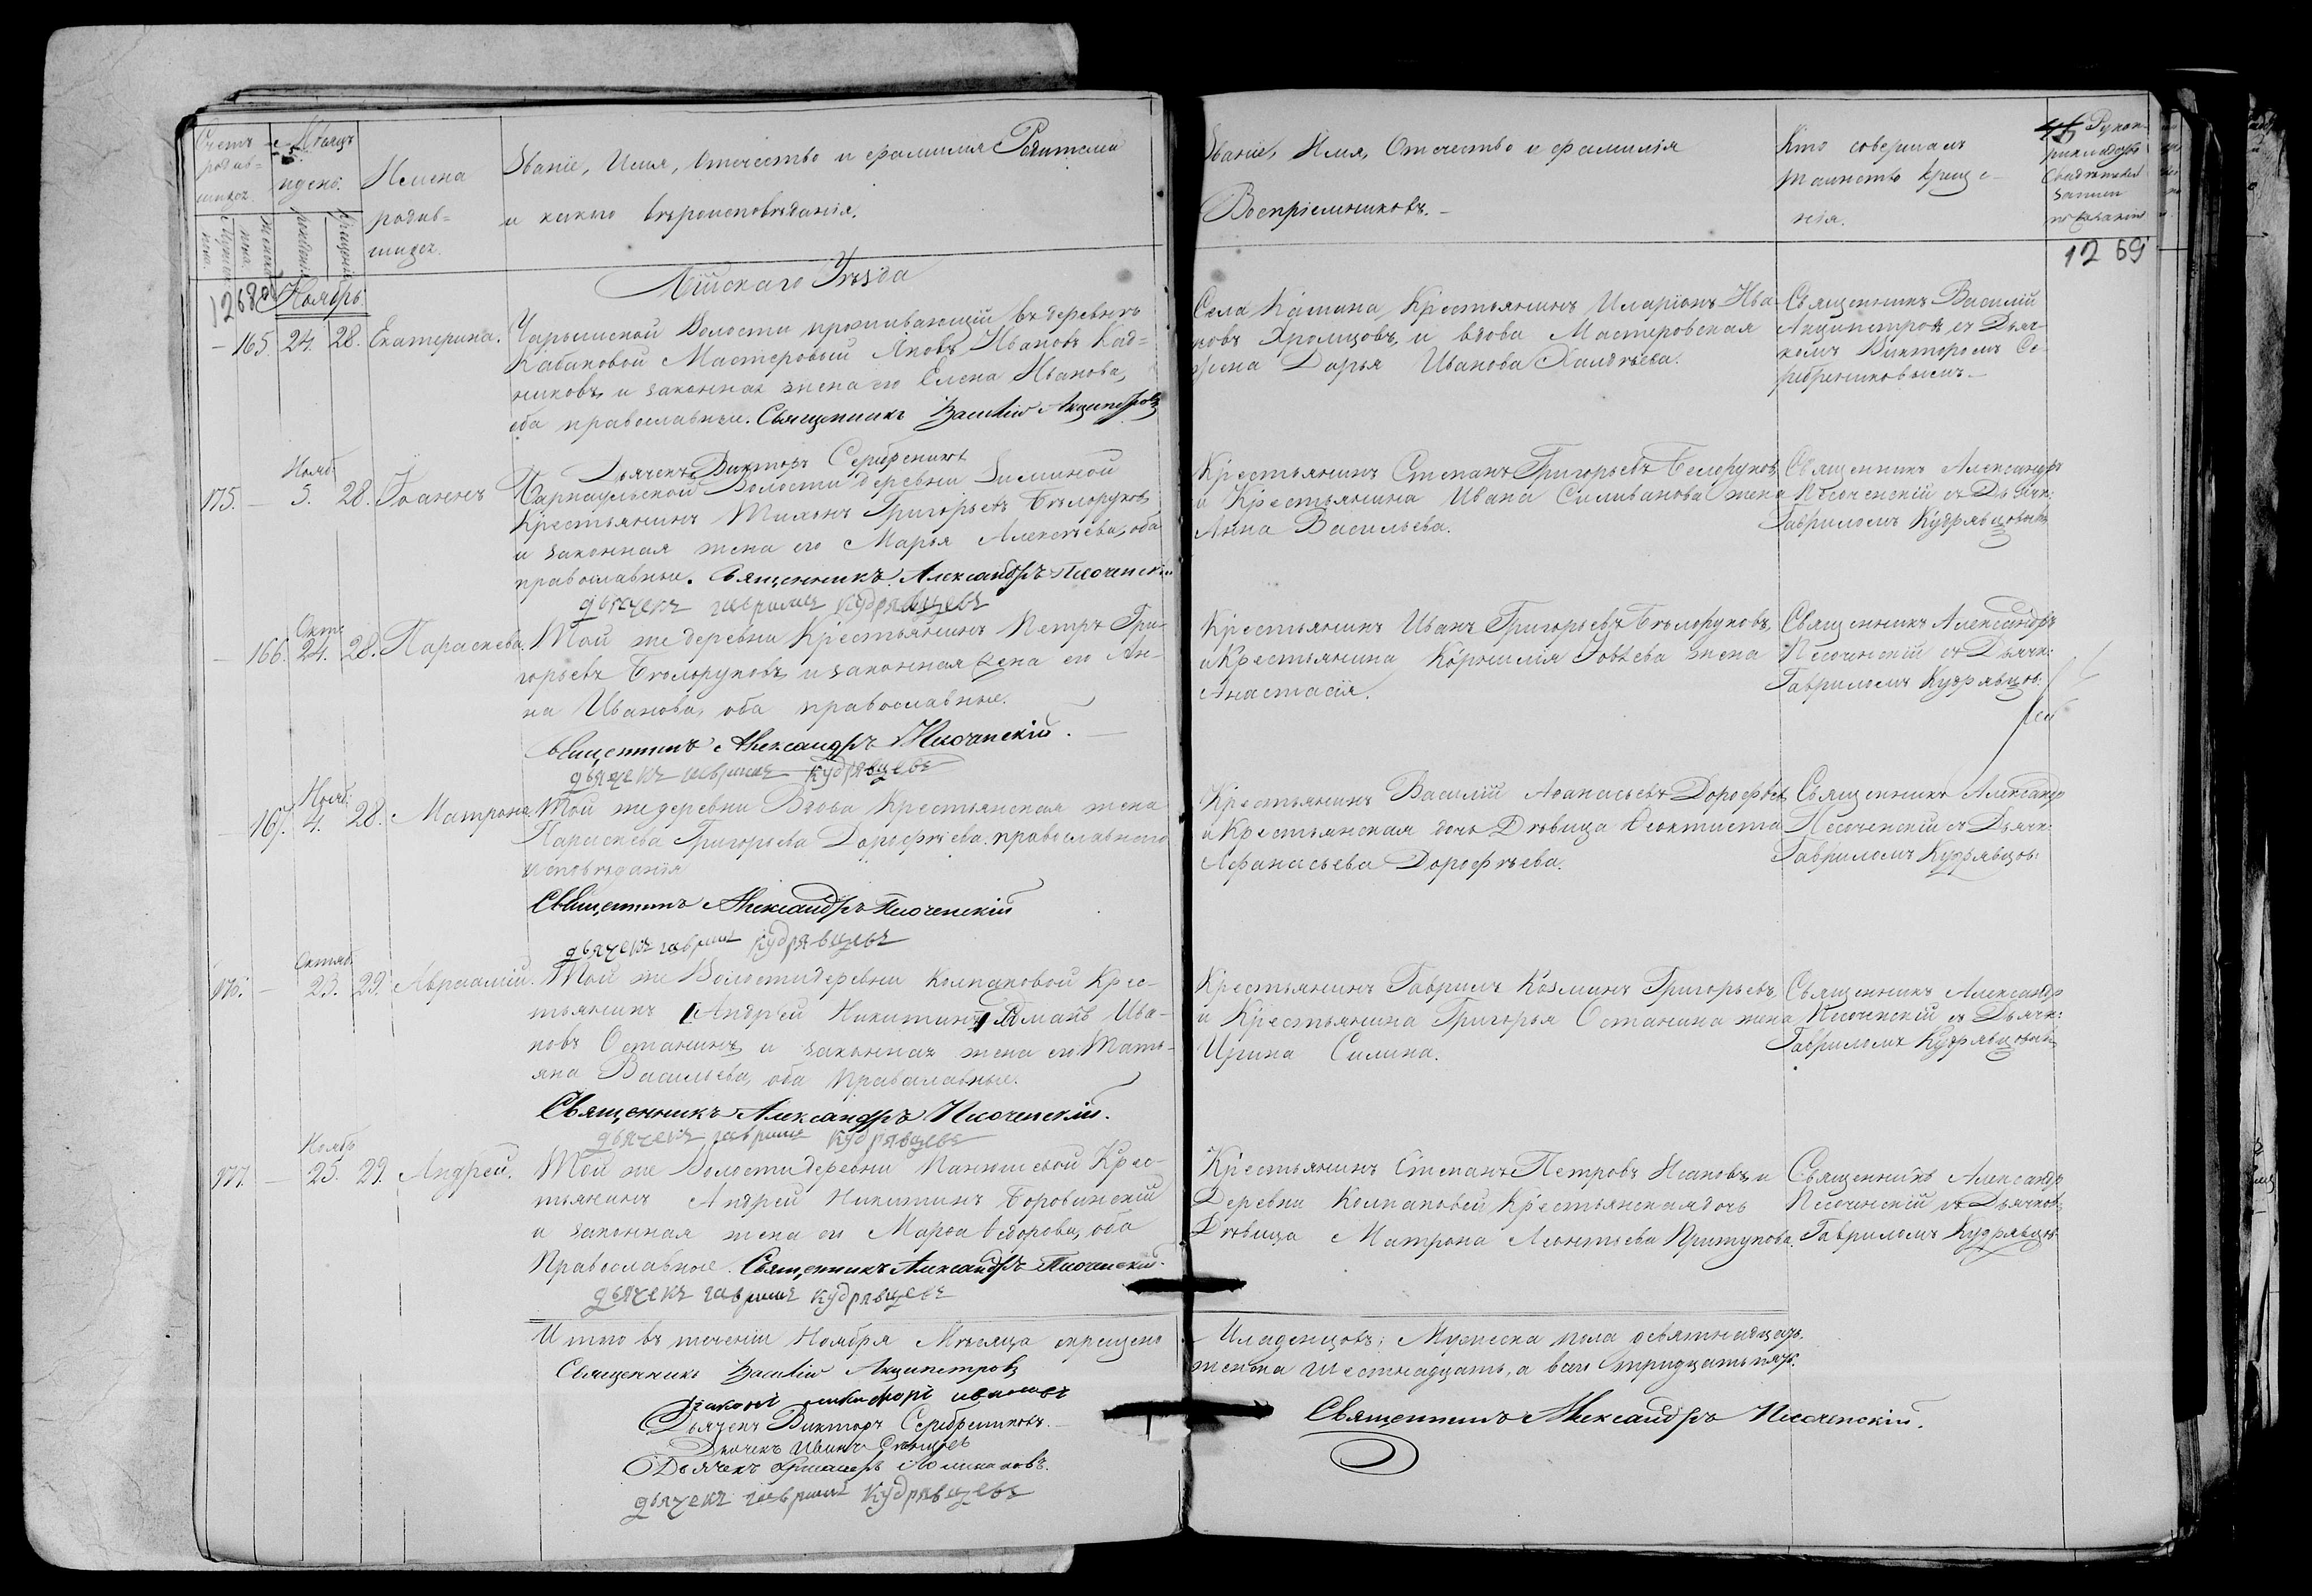 Счетъ родив-
шихся.
Мѣсяцъ
и день.
Имена
родив=
шихся.
Званіе, Имя, Отечество и фамилія Родителей
и какого вѣроисповѣданія.
Званіе, Имя, Отчество и фамилія
Воспріемниковъ.
Кто совершалъ
таинство креще-
нія.
Рукоприкладство
свидѣтелей
записи
по желанію
1268об
1269
Ноябрь
Бійскаго Уѣзда
165. 24. 28. Екатерина. Чарышской Волости проживающій въ деревнѣ
Кабановой Мастеровой Яковъ Ивановъ Кад=
никовъ, и законная жена его Елена Иванова,
оба православные. Священникъ Василій Акципетровъ
Дьячекъ Викторъ Серебрениковъ
Села Кашина, Крестьянинъ Иларіонъ Ива-
новъ Хромцовъ, и вдова Мастеровская
жена Дарья Иванова
Священникъ Василій
Акципетровъ съ Дьяч-
комъ Викторомъ Се-
ребрениковымъ.
Нояб.
175. 5. 28. Іоаннъ Барнаульской Волости деревни Зиминой
Крестьянинъ Тихонъ Григорьевъ Бѣлоруковъ
и законная жена его Марья Алексѣева, оба
православные. Священникъ Александръ Песоченскій
дьячекъ гаврилъ кудрявцевъ
Крестьянинъ Степанъ Григорьевъ Белоруковъ,
и Крестьянина Ивана Селиванова жена
Анна Васильева.
Священникъ Александръ
Песоченскій съ Дьячк:
Гавриломъ Кудрявцовымъ
Октя
166. 24. 28. Параскева. Той же деревни Крестьянинъ Петръ Гри-
горьевъ Бѣлоруковъ, и законная жена его Ан-
на Иванова, оба православные.
Священникъ Александръ Песоченскій.
дьячекъ гаврилъ кудрявцевъ
Крестьянинъ Иванъ Григорьевъ Бѣлоруковъ,
и Крестьянина Корнилія Іовлева жена
Анастасія.
Священникъ Александръ
Песоченскій съ Дьячк:
Гавриломъ Кудрявцов:
Нояб:
167. 4. 28. Матрона. Той же деревни Вдова Крестьянская жена
Параскева Григорьева Дорофѣева православнаго
исповѣданія
Священникъ Александръ Песоченскій
дьячекъ гаврилъ кудрявцевъ
Крестьянинъ Василій Аѳанасьевъ Дорофѣевъ,
и Крестьянская дочь Дѣвица Ѳеоктиста
Афанасьева Дорофѣева.
Священникъ Александр
Песоченскій съ Дьячк:
Гавриломъ Кудрявцов:
Октяб.
176. 23. 29. Авраамій. Той же Волости деревни Колпаковой Крес-
тьянинъ Андрей Никитинъ Романъ Ива-
новъ Останинъ, и законная жена его Тать-
яна Васильева, оба Православные.
Священникъ Александръ Песоченскій.
дьячекъ гаврилъ кудрявцевъ
Крестьянинъ Гаврилъ Козминъ Григорьевъ,
и Крестьянина Григорья Останина жена
Ирина Силина.
Священникъ Александр
Песоченскій съ Дьячк:
Гавриломъ Кудрявцовым
Ноябр
177. 25. 29. Андрей. Той же Волости деревни Панюшевой Крес-
тьянинъ Андрей Никитинъ Боровинскій
и законная жена его Марѳа Ѳедорова, оба
Православные. Священникъ Александръ Песоченскій.
дьячекъ гаврилъ кудрявцевъ
Крестьянинъ Степанъ Петровъ Исаковъ, и
Деревни Колпаковой Крестьянская дочь
Дѣвица Матрона Леонтьева Притупова.
Священникъ Александръ
Песоченскій съ Дьячком
Гавриломъ Кудрявцов
Итто въ теченіи Ноября Мѣсяца окрещено
Младенцовъ: Мужеска пола девятнадцать.
женска шестнадцать, а всего тридцать пять.
Священникъ Василій Акципетровъ
Дьячекъ Викторъ Серебрениковъ.
Дьячекъ Иванъ
Дьячекъ
дьячекъ гаврилъ кудрявцевъ
Священникъ Александръ Песоченскій.